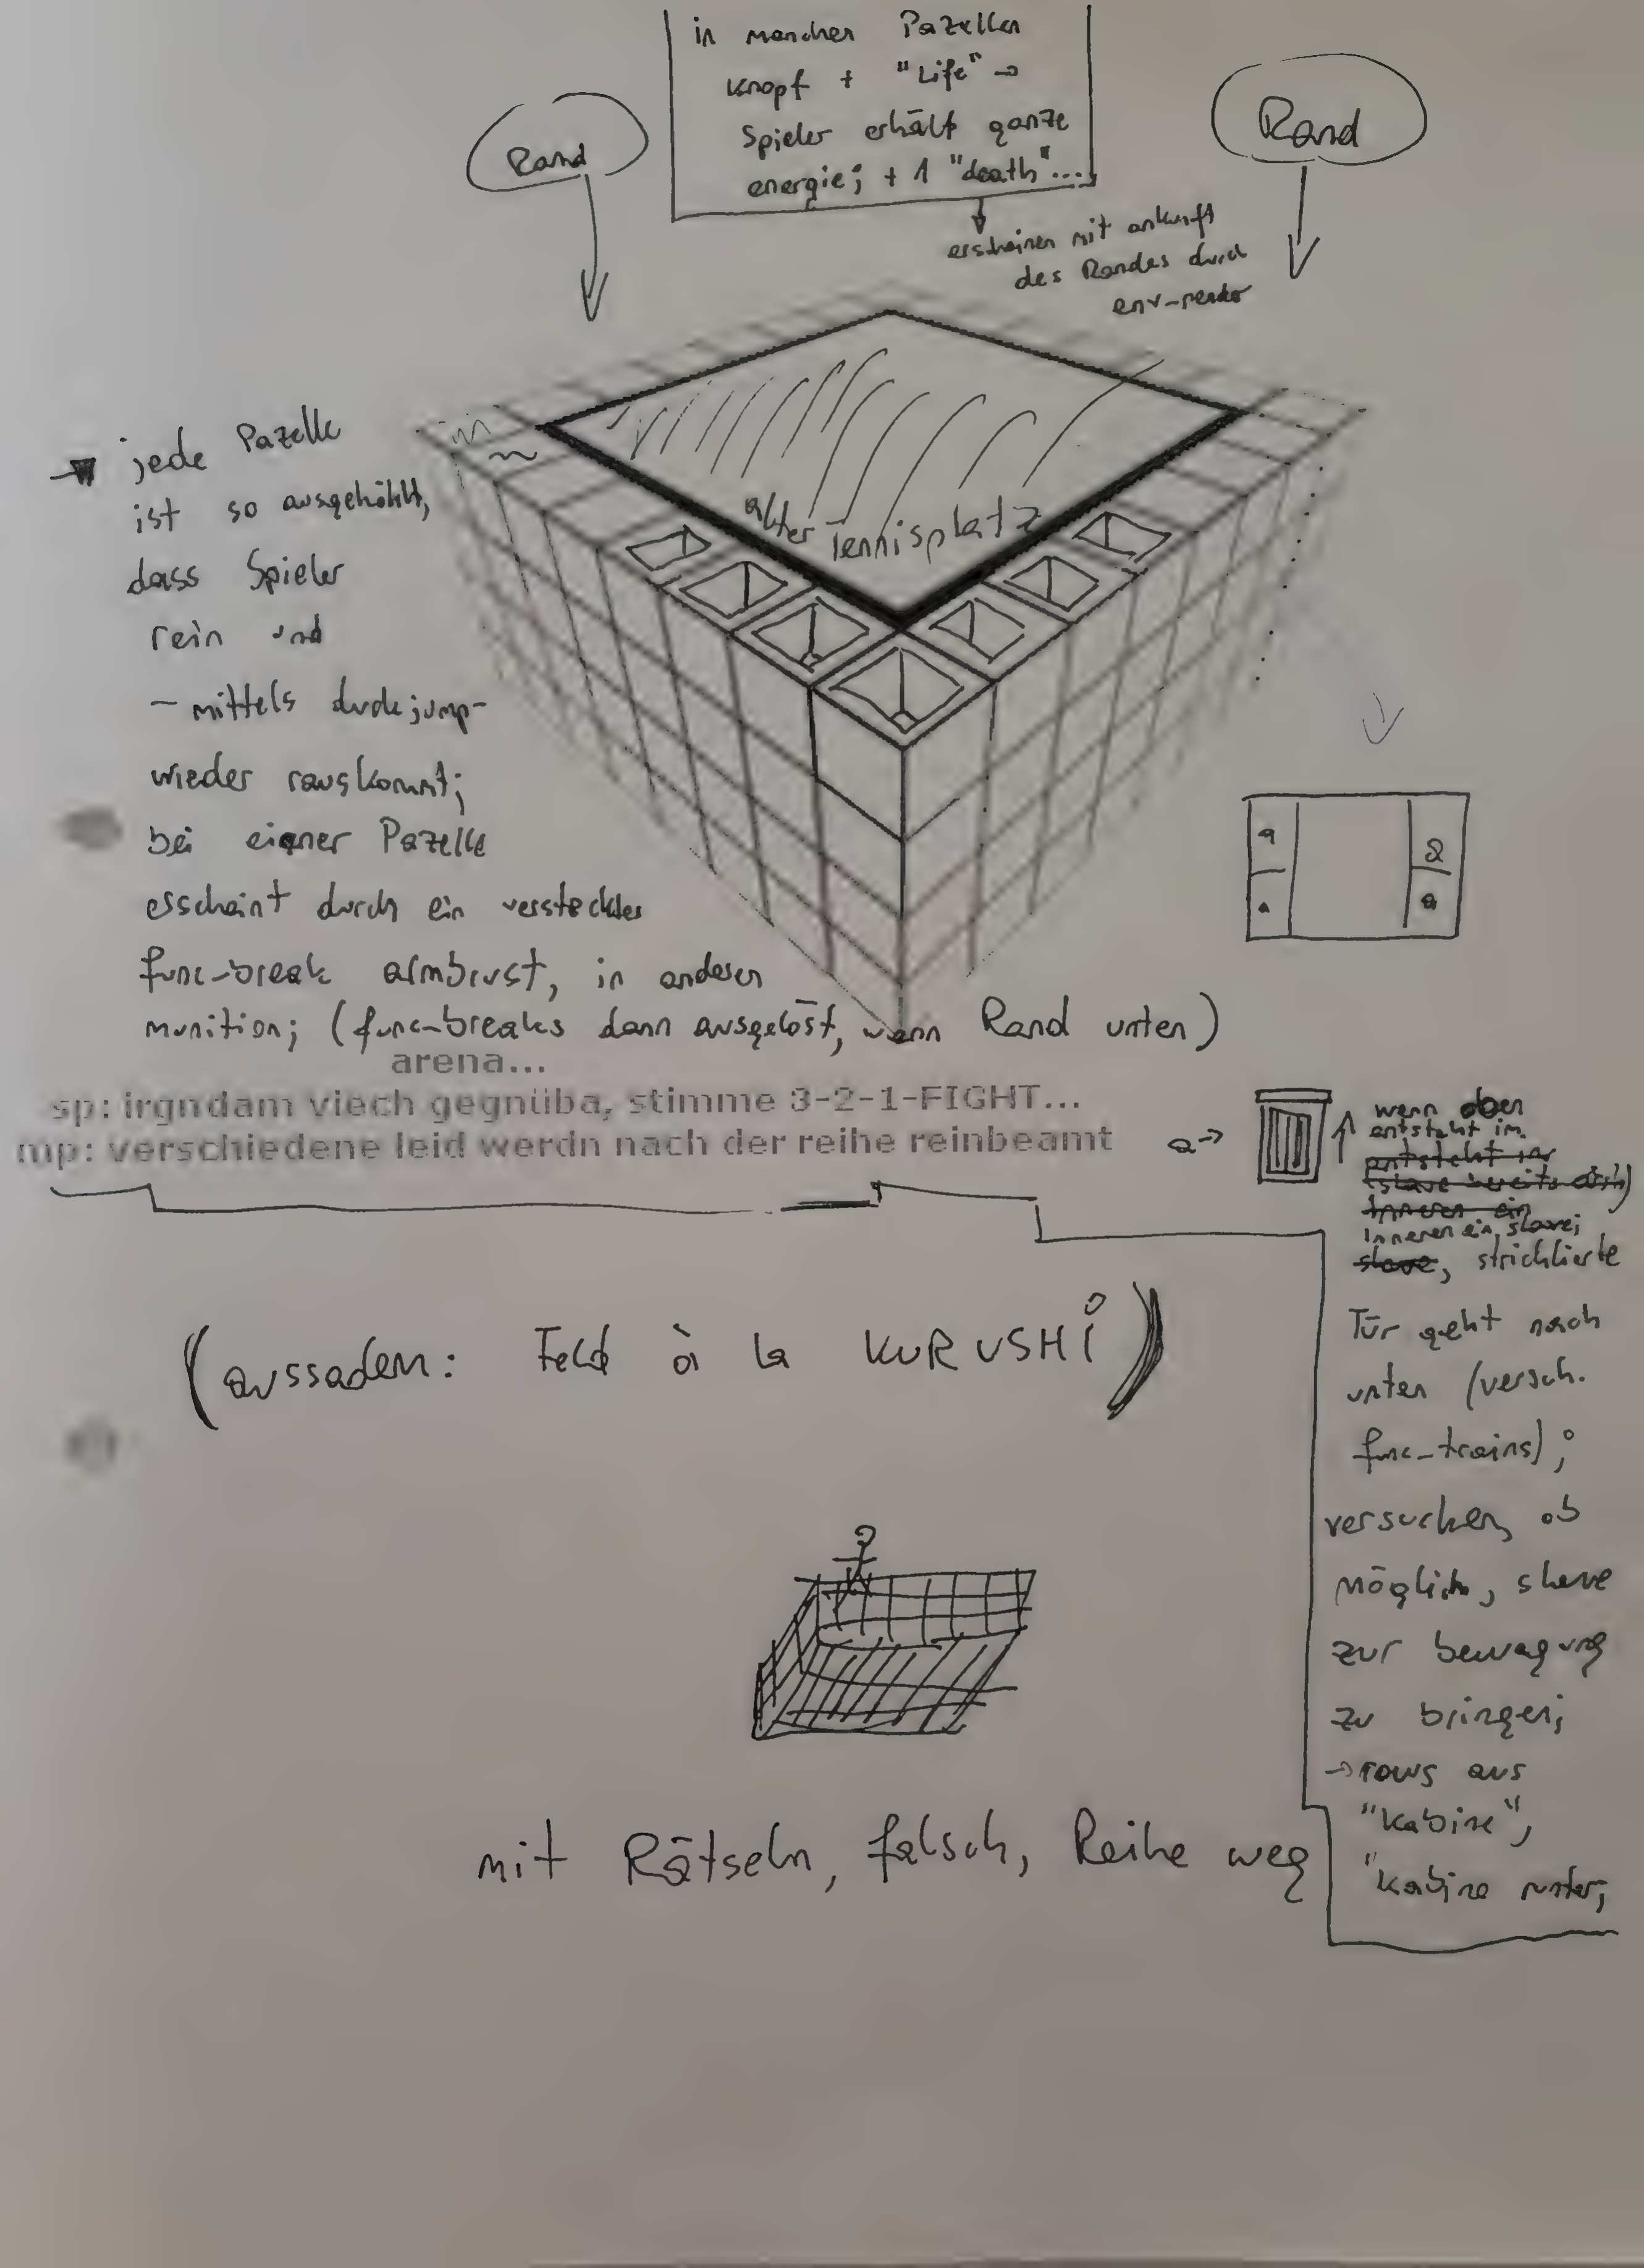 in manchen Pazellen
Knopf + "Life" →
Spieler erhält ganze
energie; + 1 "death"...
Rand
Rand
erscheinen mit ankunft
des Randes durch
alter Tennisplatz
→ jede Pazelle
ist so ausgehöhlt,
dass Spieler
rein und
- mittels duckjump-
wieder rauskommt;
bei eigner Pazelle
esscheint durch ein verstecktes
func-break armbrust, in anderen
munition; (func-breaks dann ausgelöst, wenn Rand unten)
a
a
a
a
arena...
sp: irgndam viech gegnüba, stimme 3-2-1-FIGHT...
mp: verschiedene leid werdn nach der reihe reinbeamt
a →
wenn oben
entsteht im
entsteht im
(slave bereits
Inneren ein
inneren ein slave;
slave, strichlierte
Tür geht nach
unten (versch.
func_trains);
versuchen, ob
möglich, slave
zur bewegung
zu bringen;
→ raus aus
"kabine",
"kabine runter;
(aussadem: Feld à la KURUSHi)
mit Rätseln, falsch, Reihe weg